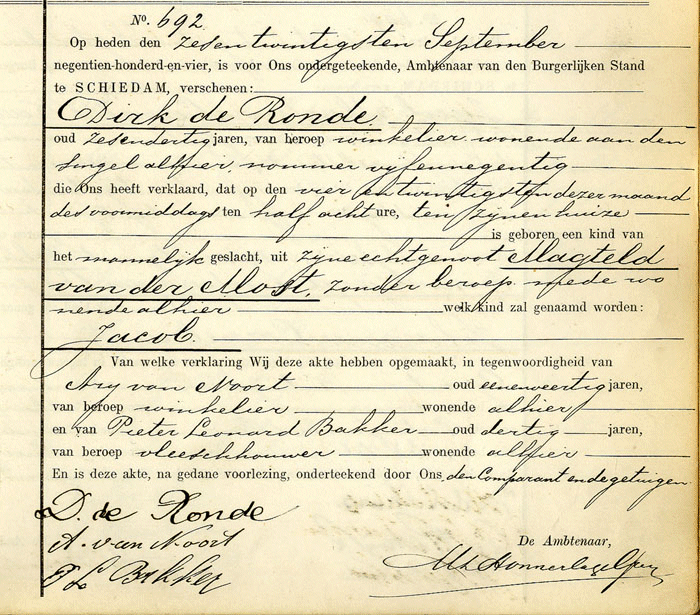 No. 692
Op heden den zesentwintigsten September
negentien-honderd-en-vier, is voor Ons ondergeteekende, Ambtenaar van den Burgerlijken Stand
te SCHIEDAM, verschenen:
Dirk de Ronde
oud zesendertig jaren, van beroep winkelier wonende aan den
Singel alhier, nommer vijfennegentig
die Ons heeft verklaard, dat op den vier en twintigsten dezer maand
des voormiddags ten half acht ure, ten zijnen huize
is geboren een kind van
het mannelijk geslacht, uit zijne echtgenoot Magteld
van der Most, zonder beroep mede wo
nende alhier welk kind zal genaamd worden:
Jacob.
Van welke verklaring Wij deze akte hebben opgemaakt, in tegenwoordigheid van
Ary van Noort oud eenenveertig jaren,
van beroep winkelier wonende alhier
en van Pieter Leonard Bakker oud dertig jaren,
van beroep vleeschhouwer wonende alhier
En is deze akte, na gedane voorlezing, onderteekend door Ons, den Comparant en de getuigen
D. de Ronde
A. van Noort
P L Bakker
De Ambtenaar,